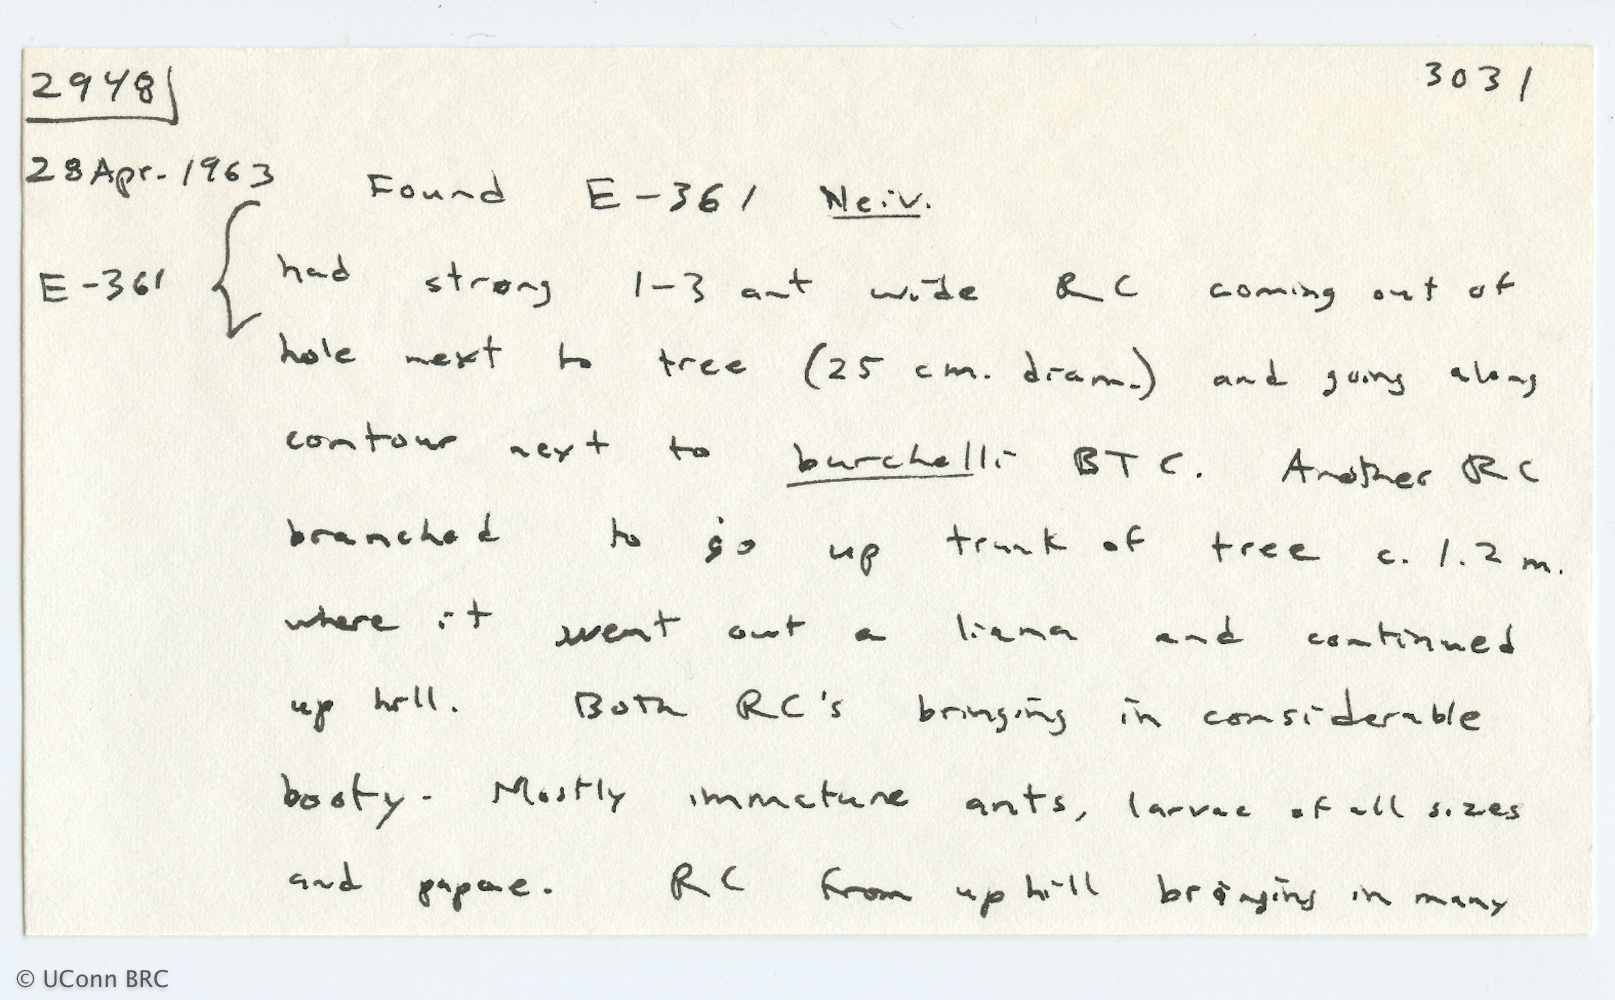 2948 3031
28 Apr. 1963 Found E-361 Neiv.
E-361 had strong 1-3 ant wide RC coming out of
hole next to tree (25 cm. diam.) and going along
contour next to burchelli BTC. Another RC
branched to go up trunk of tree c. 1.2 m.
where it went out a liana and continued
up hill. Both RC's bringing in considerable
booty. Mostly immature ants, larvae of all sizes
and pupae. RC from up hill bringing in many
© UConn BRC